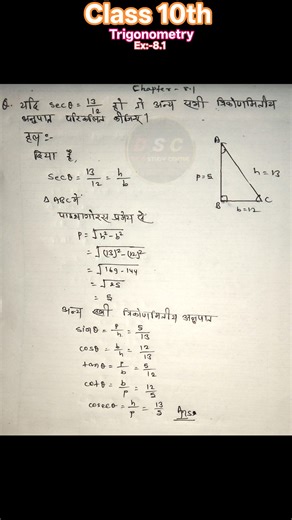 Class 10th
Trigonometry
Ex:-8.1
Chapter - 8.1
Q. यदि secθ = 13/12 हो तो अन्य सभी त्रिकोणमितीय
अनुपात परिकलित कीजिए।
हल:-
दिया है,
secθ = 13/12 = h/b
A
p=5
h=13
B
b=12
C
△ ABC में
पाइथागोरस प्रमेय से
P = √h²-b²
= √(13)²-(12)²
= √169-144
= √25
= 5
अन्य सभी त्रिकोणमितीय अनुपात
sinθ = P/h = 5/13
cosθ = b/h = 12/13
tanθ = P/b = 5/12
cotθ = b/P = 12/5
cosecθ = h/P = 13/5 Ans